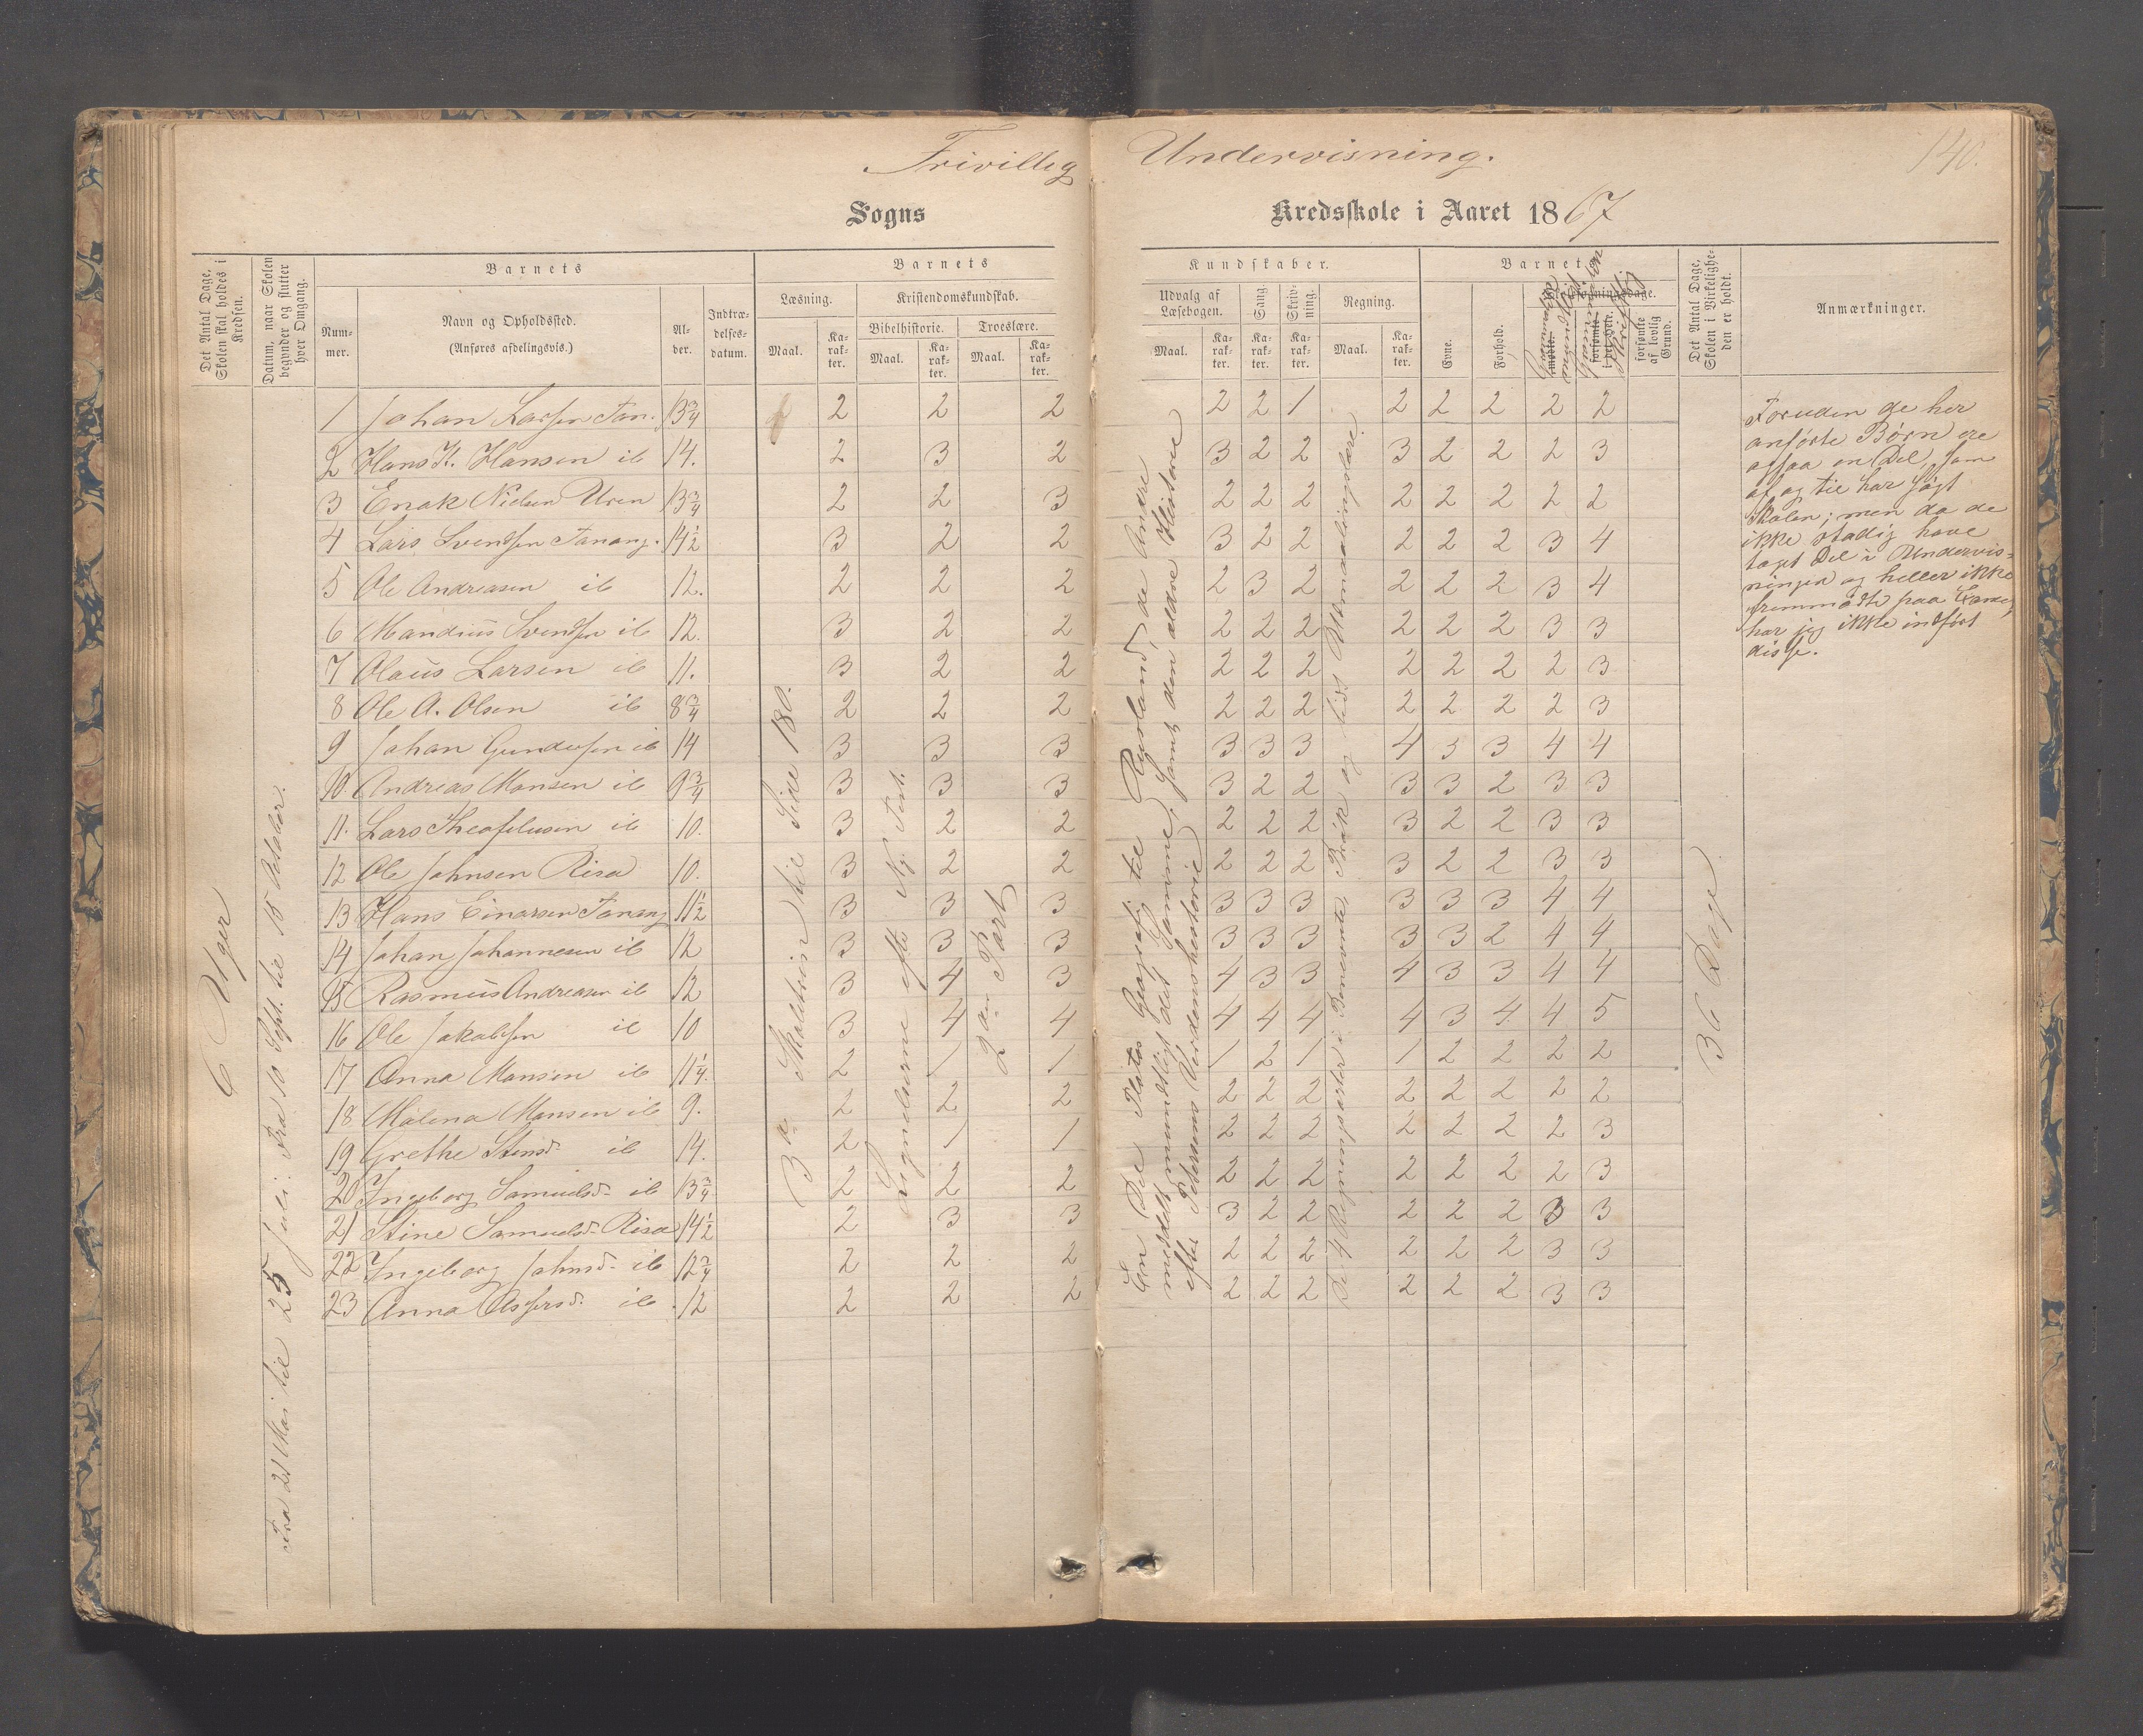 Frivillig Undervisning.
140.
Sogns Kredsskole i Aaret 1867
Det Antal Dage, Skolen skal holdes i Kredsen.
Datum, naar Skolen begynder og slutter hver Omgang.
Barnets
Num-mer.
Navn og Opholdssted.
(Anføres afdelingsvis.)
Al-der.
Indtræ-delses-datum.
Barnets
Læsning.
Maal.
Ka-rak-ter.
Kristendomskundskab.
Bibelhistorie.
Maal.
Ka-rak-ter.
Troeslære.
Maal.
Ka-rak-ter.
Kundskaber.
Udvalg af Læsebogen.
Maal.
Ka-rak-ter.
Sang.
Ka-rak-ter.
Skriv-ning.
Ka-rak-ter.
Regning.
Maal.
Ka-rak-ter.
Barnets
Evne.
Forhold.
forsømte af lovlig Grund.
Det Antal Dage, Skolen i Virkelighe-den er holdt.
Anmærkninger.
6 Uger
Fra 21 Mai til 25 Juli. Fra 10 Sept. til 15 Oktober.
1 Johan Larsen Tan. 13 3/4 2 2 2 2 2 1 2 2 2 2 2
2 Hans K. Hansen ib 14. 2 3 2 3 2 2 3 2 2 2 3
3 Enok Nielsen Uren 13 3/4 2 2 3 2 2 2 2 2 2 2 2
4 Lars Svendsen Tanang. 14 1/2 3 2 2 3 2 2 2 2 2 3 4
5 Ole Andreasen ib 12. 2 2 2 2 3 2 2 2 2 3 4
6 Mandius Svendsen ib 12. 3 2 2 2 2 2 2 2 2 3 3
7 Olaus Larsen ib 11. 3 2 2 2 2 2 2 2 2 2 3
8 Ole A. Olsen ib 8 3/4 2 2 2 2 2 2 2 2 2 2 3
9 Johan Gundersen ib 14 3 3 3 3 3 3 4 3 3 4 4
10. Andreas Monsen ib 9 3/4 3 3 3 3 2 2 3 3 2 3 3
11. Lars Theofelusen ib 10. 3 2 2 2 2 2 3 2 2 3 3
12 Ole Johnsen Risa 10. 3 2 2 2 2 2 3 2 2 3 3
13 Hans Einarsen Tanang 11 1/2 3 3 3 3 3 3 3 3 3 4 4
14 Johan Johannesen ib 12 3 3 3 3 3 3 3 3 2 4 4
15 Rasmus Andreasen ib 12 3 4 3 4 3 3 4 3 3 4 4
16 Ole Jakobsen ib 10 3 4 4 4 4 4 4 3 4 4 5
17 Anna Monsen ib 11 1/4. 2 1 1 1 2 1 1 2 2 2 2
18 Malena Monsen ib 9. 2 2 2 2 2 2 2 2 2 2 2
19 Grethe Stensd. ib 14. 2 1 1 2 2 2 2 2 2 2 3
20 Ingeborg Samuelsd. ib 13 3/4 2 2 2 2 2 2 2 2 2 2 3
21 Stine Samuelsd. Risa 14 1/2 2 3 3 3 2 2 2 2 2 3 3
22 Ingeborg Johnsd. ib 12 3/4 2 2 2 2 2 2 2 2 2 3 3
23 Anna Asersd. ib 12 2 2 2 2 2 2 2 2 2 3 3
3die Skoletrin til Side 180.
Lignelserne efter Ny. Test.
2den Part
En Del Platos Geografi til Rusland, de Andre
meddelt mundtligt det Samme, samt den ældre Historie
efter Petersens Verdenshistorie
De 4 Regningsarter i Benevnte, Brøk og lidt Udmaalingslære
36 Dage
Foruden de her
anførte Børn ere
ogsaa en Del, som
af og til har søgt
Skolen; men da de
ikke stadig have
taget Del i Undervis-
ningen og heller ikke
fremmødte paa Examen,
har jeg ikke indført
disse.